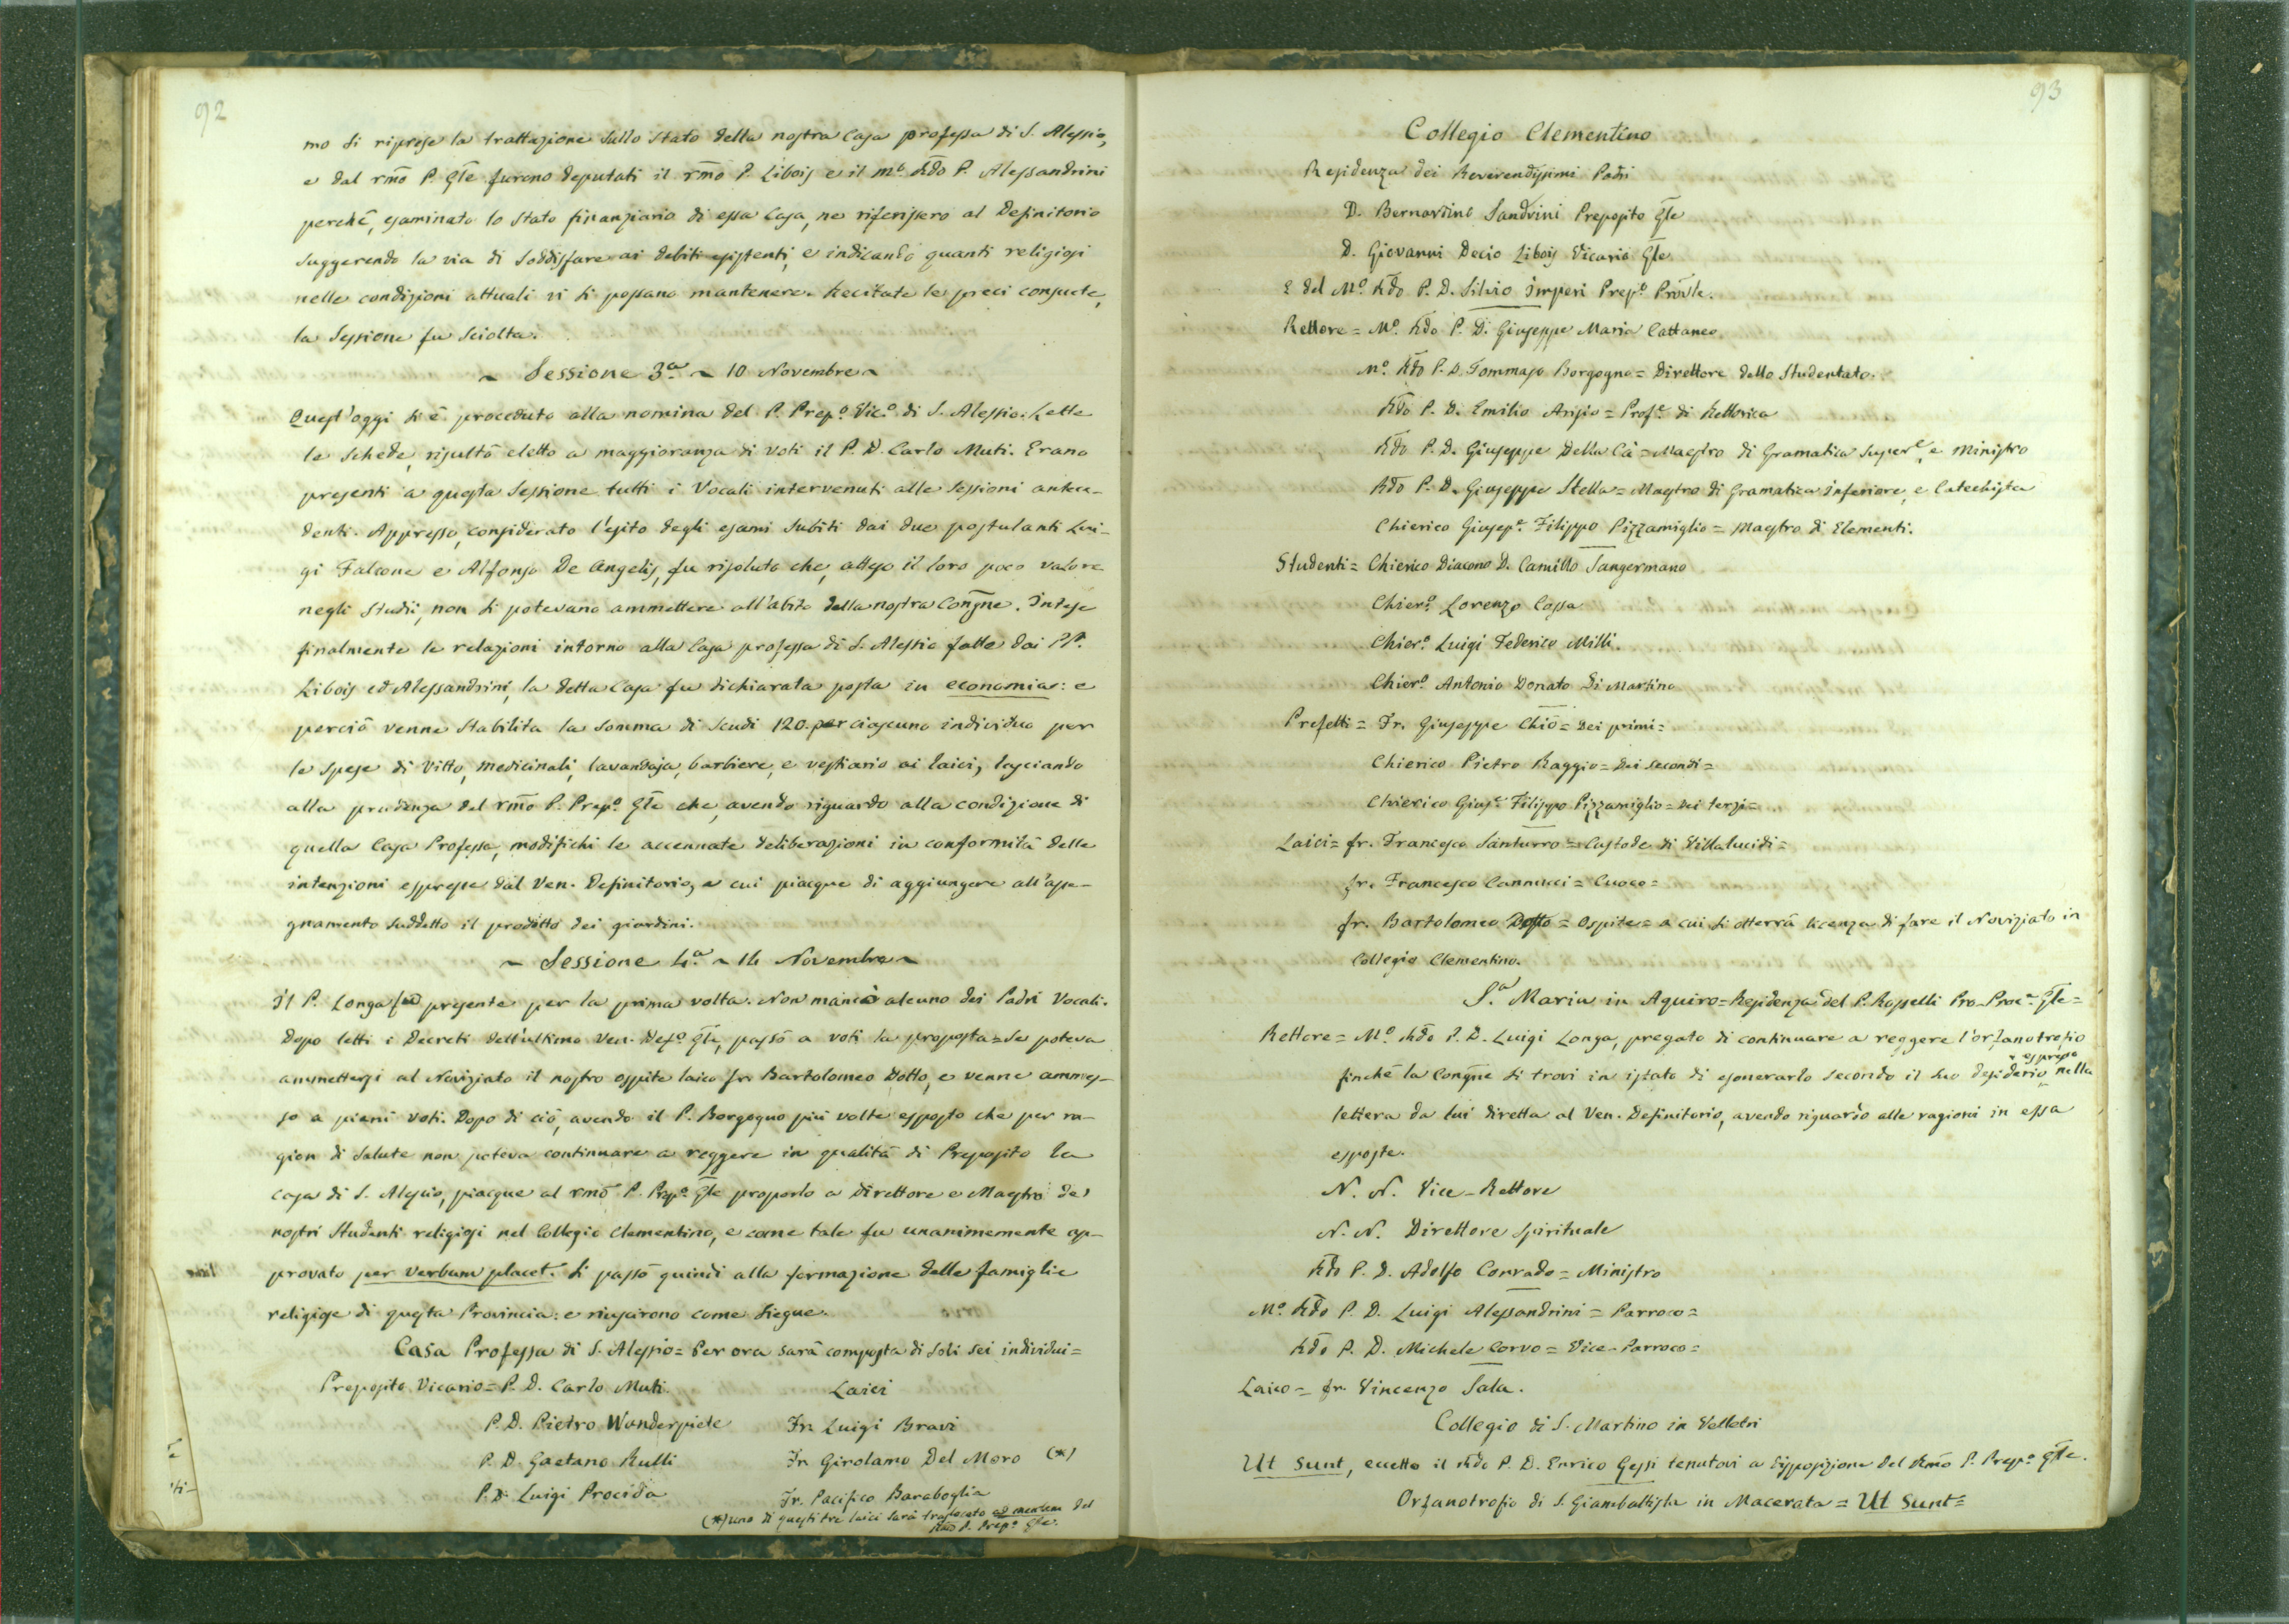 92
mo si riprese la trattazione sullo stato della nostra Casa professa di S. Alessio,
e dal rm̃o P. Gl̃e furono deputati il rm̃o P. Libois e il m.º Rd̃o P. Alessandrini
perchè, esaminato lo stato finanziario di essa Casa, ne riferissero al Definitorio
suggerendo la via di soddisfare ai debiti esistenti, e indicando quanti religiosi
nelle condizioni attuali vi si possano mantenere. Recitate le preci consuete,
la sessione fu sciolta.
~ Sessione 3.ª ~ 10 Novembre ~
Quest'oggi si è proceduto alla nomina del P. Prep.º Vic.º di S. Alessio. Lette
le schede, risultò eletto a maggioranza di voti il P. D. Carlo Muti. Erano
presenti a questa sessione tutti i Vocali intervenuti alle sessioni antece-
denti. Appresso, considerato l'esito degli esami subiti dai due postulanti Lui-
gi Falcone e Alfonso De Angelis, fu risoluto che, atteso il loro poco valore
negli studii, non si potevano ammettere all'abito della nostra Congñe. Intese
finalmente le relazioni intorno alla Casa professa di S. Alessio fatte dai PP.
Libois ed Alessandrini, la detta Casa fu dichiarata posta in economia: e
perciò venne stabilita la somma di scudi 120. per ciascuno individuo per
le spese di vitto, medicinali, lavandaja, barbiere, e vestiario ai laici, lasciando
alla prudenza del rm̃o P. Prep.º Gl̃e che, avendo riguardo alla condizione di
quella Casa Professa, modifichi le accennate deliberazioni in conformità delle
intenzioni espresse dal Ven. Definitorio, a cui piacque di aggiungere all'asse-
gnamento suddetto il prodotto dei giardini.
~ Sessione 4.ª ~ 14 Novembre ~
Il P. Longa fu presente per la prima volta. Non mancò alcuno dei Padri Vocali.
Dopo letti i Decreti dell'ultimo Ven. Def.º Gl̃e, passò a voti la proposta = se poteva
ammettersi al Noviziato il nostro ospite laico fr. Bartolomeo Dotto, e venne ammes-
so a pieni voti. Dopo di ciò, avendo il P. Borgogno più volte esposto che per ra-
gion di salute non poteva continuare a reggere in qualità di Preposito la
casa di S. Alessio, piacque al rm̃o P. Prep.º Gl̃e proporlo a Direttore e Maestro de'
nostri studenti religiosi nel Collegio Clementino, e come tale fu unanimemente ap-
provato per verbum placet. Si passò quindi alla formazione delle famiglie
religiose di questa Provincia: e riuscirono come siegue.
Casa Professa di S. Alessio = Per ora sarà composta di soli sei individui =
Preposito Vicario = P. D. Carlo Muti. Laici
P. D. Pietro Wanderpiete Fr. Luigi Bravi
P. D. Gaetano Rulli Fr. Girolamo Del Moro (*)
P. D. Luigi Procida Fr. Pacifico Baraboglia
(*) uno di questi tre laici sarà traslocato ad mentem del
Rm̃o P. Prep.º Gl̃e.
93
Collegio Clementino
Residenza dei Reverendissimi Padri
D. Bernardino Sandrini Preposito Gl̃e
D. Giovanni Decio Libois Vicario Gl̃e
E del M.º Rd̃o P. D. Silvio Imperi Prep.º Proṽle.
Rettore = M.º Rd̃o P. D. Giuseppe Maria Cattaneo
M.º Rd̃o P. D. Tommaso Borgogno = Direttore dello Studentato.
Rd̃o P. D. Emilio Arisio = Prof.e di Rettorica
Rd̃o P. D. Giuseppe Della Cà = Maestro di Gramatica Super.e, e Ministro
Rd̃o P. D. Giuseppe Stella = Maestro di Gramatica Inferiore, e Catechista
Chierico Giusep.e Filippo Pizzamiglio = Maestro di Elementi.
Studenti = Chierico Diacono D. Camillo Sangermano
Chier.º Lorenzo Cossa
Chier.º Luigi Federico Milli.
Chier.º Antonio Donato Di Martino
Prefetti = Fr. Giuseppe Chiò = Dei primi =
Chierico Pietro Raggio = Dei secondi =
Chierico Gius.e Filippo Pizzamiglio = Dei terzi =
Laici = fr. Francesco Santurro = Custode di Villalucidi =
fr. Francesco Cannucci = Cuoco =
fr. Bartolomeo Dotto = Ospite = a cui si otterrà licenza di fare il Noviziato in
Collegio Clementino.
S.ª Maria in Aquiro = Residenza del P. Rosselli Pro-Proc.e Gl̃e =
Rettore = M.º Rd̃o P. D. Luigi Longa, pregato di continuare a reggere l'orfanotrofio
finchè la Congñe si trovi in istato di esonerarlo secondo il suo desiderio espresso nella
lettera da lui diretta al Ven. Definitorio, avendo riguardo alle ragioni in essa
esposte.
N. N. Vice-Rettore
N. N. Direttore Spirituale
Rd̃o P. D. Adolfo Conrado = Ministro
M.º Rd̃o P. D. Luigi Alessandrini = Parroco =
Rd̃o P. D. Michele Corvo = Vice-Parroco =
Laico = fr. Vincenzo Sala.
Collegio di S. Martino in Velletri
Ut sunt, eccetto il Rd̃o P. D. Enrico Gessi tenutovi a disposizione del Rm̃o P. Prep.º Gl̃e.
Orfanotrofio di S. Giambattista in Macerata = Ut sunt =